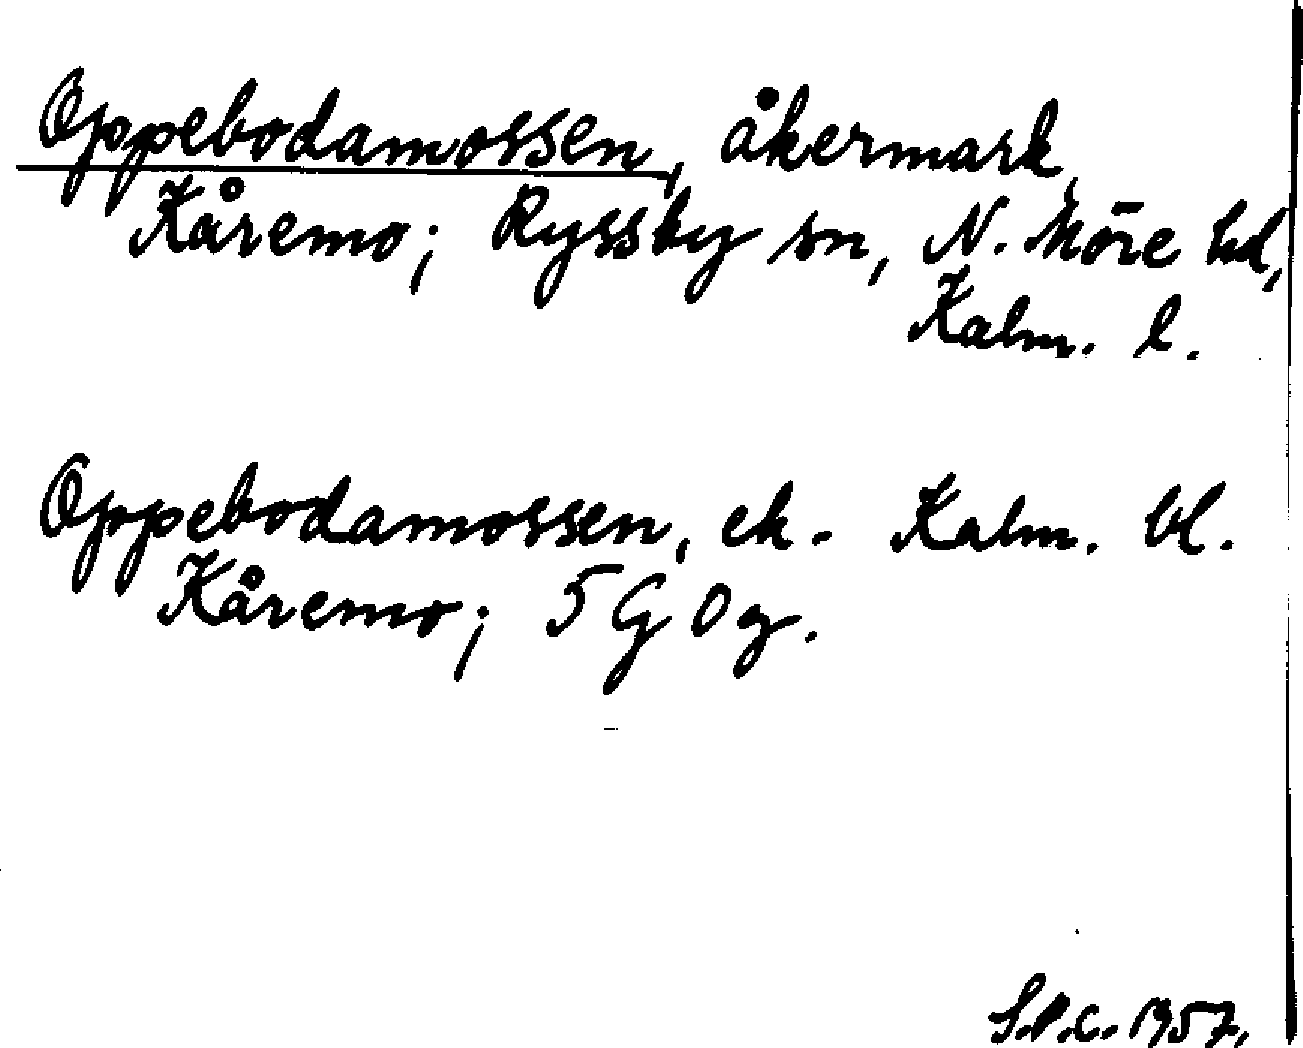 Oppebodamossen, åkermark,
Kåremo; Ryssby sn, N. Möre hd,
Kalm. l.
Oppebodamossen, ek. Kalm. bl.
Kåremo; 5 G 0 g.
S.P.C. 1957.